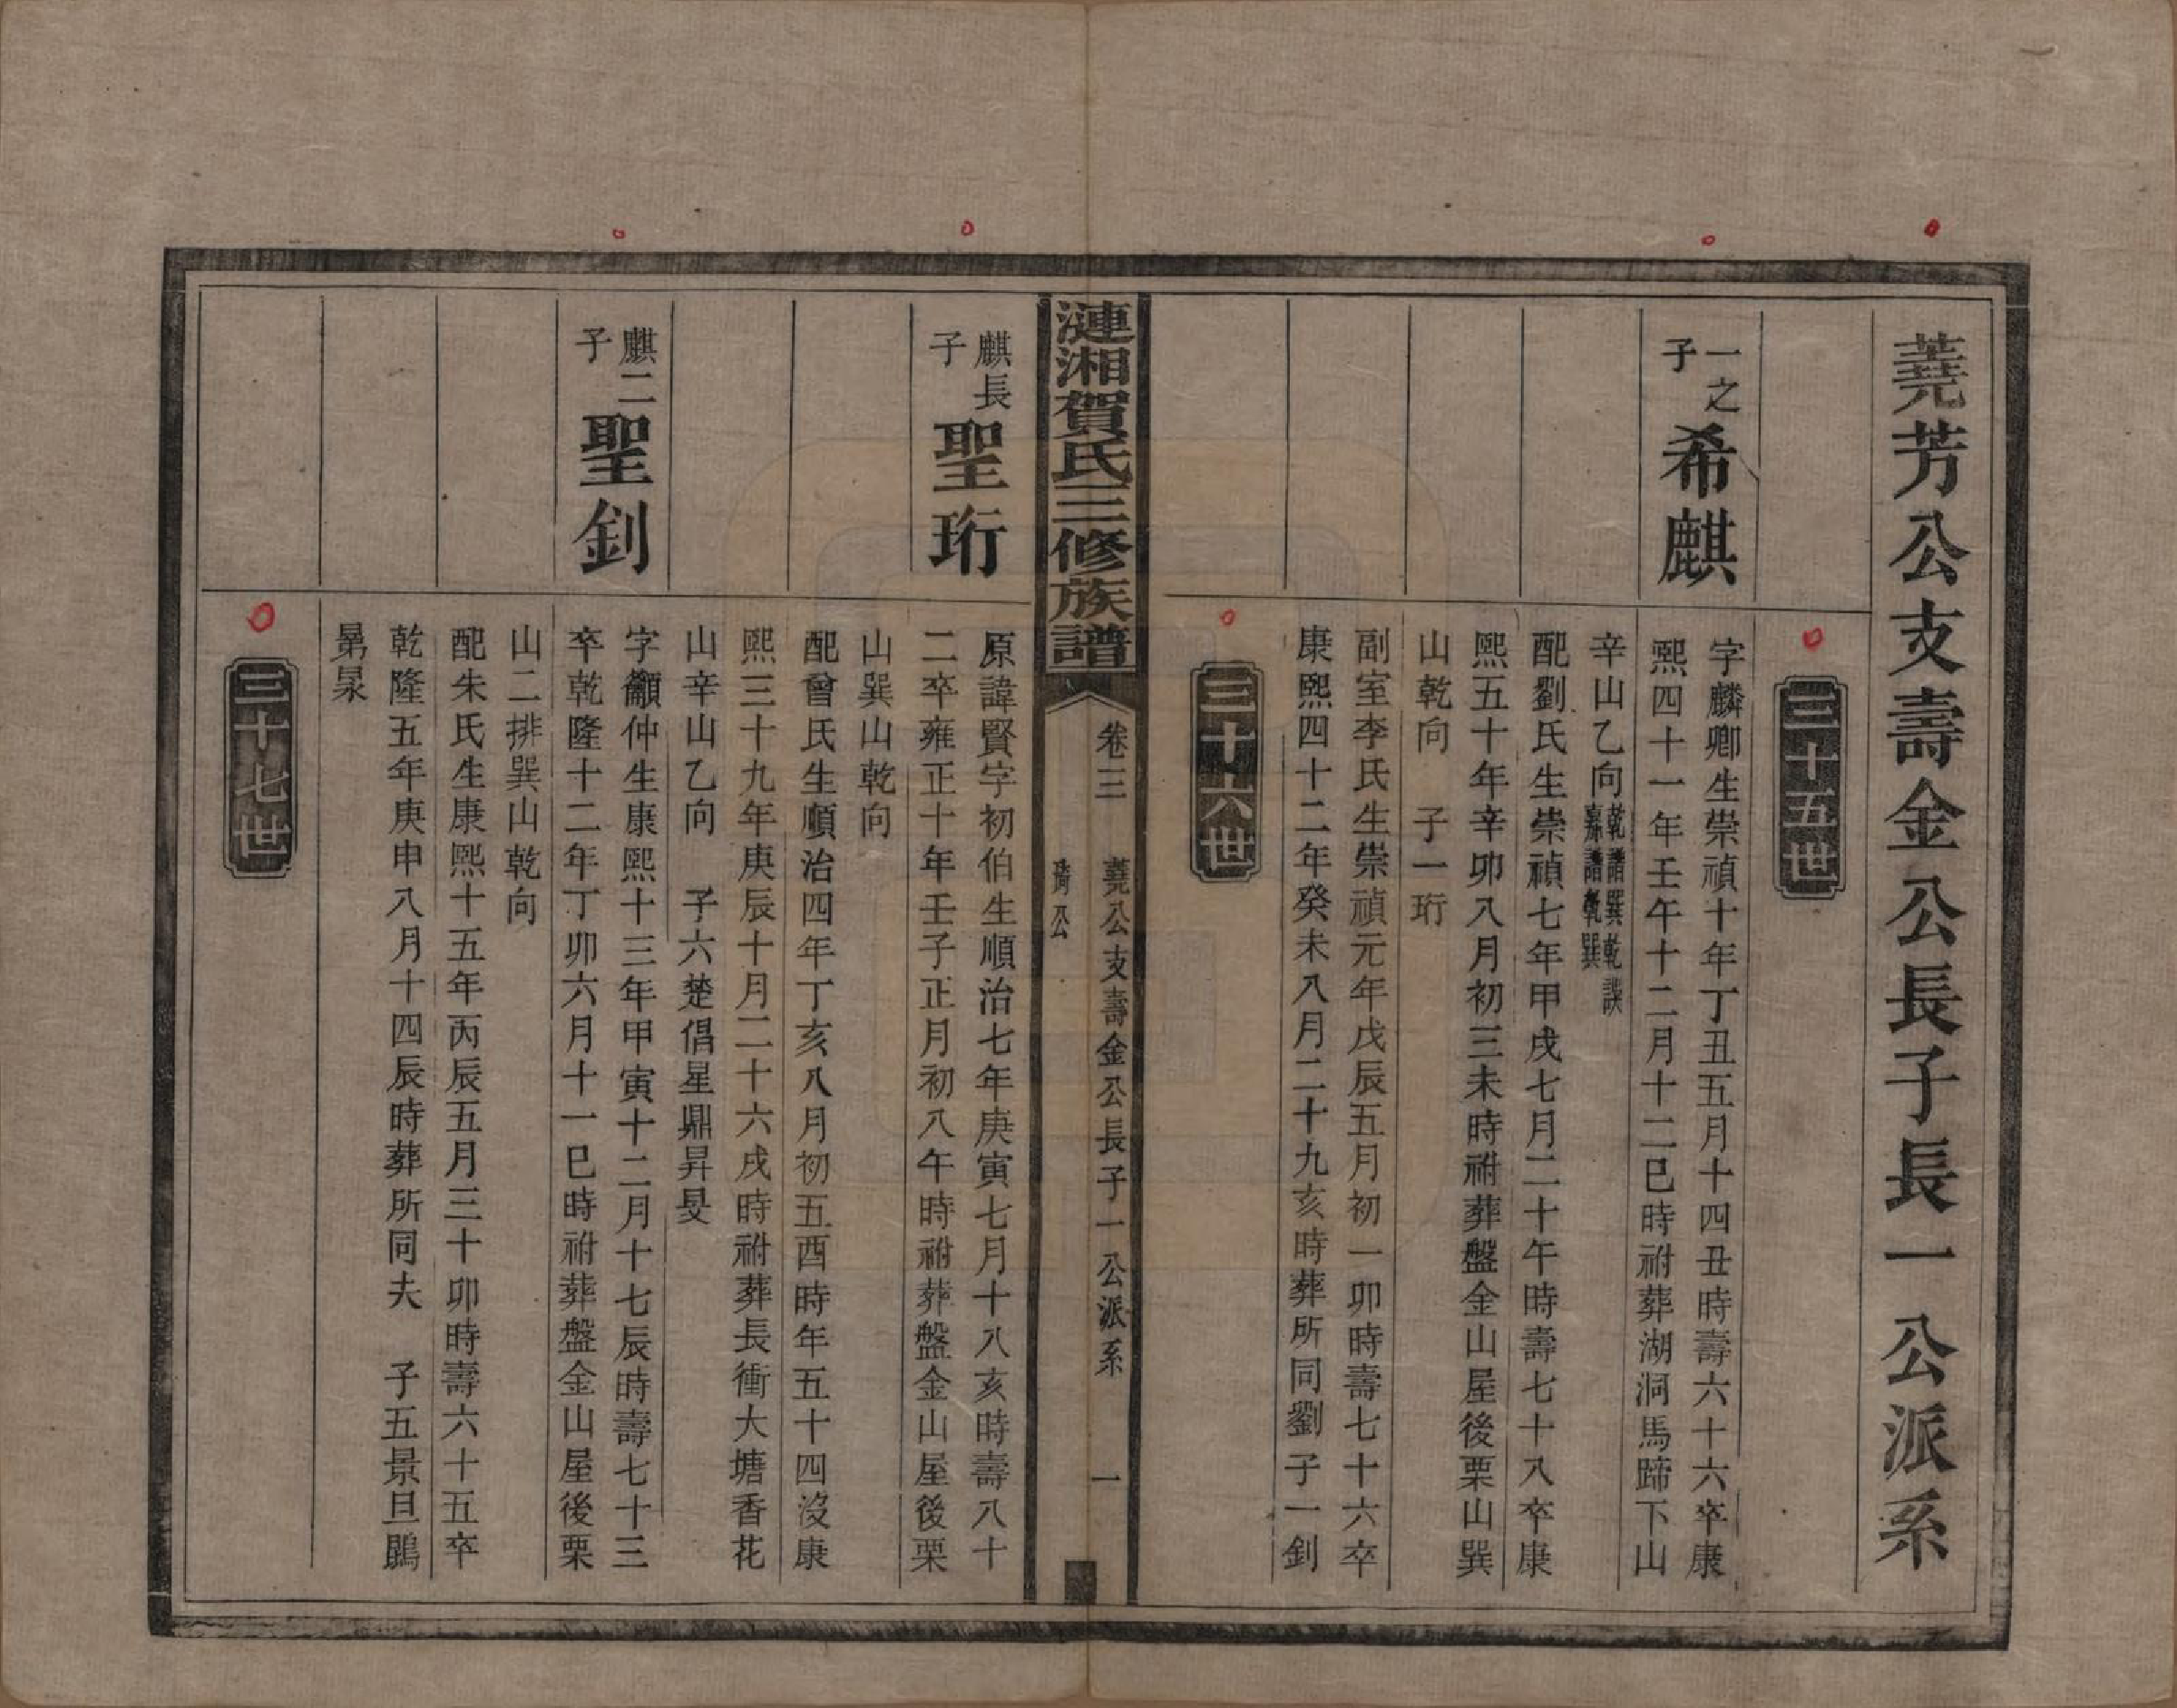 蕘芳公支壽金公長子長一公派系
三十五世
一之子 希麒
字麟卿生崇禎十年丁丑五月十四丑時壽六十六卒康
熙四十一年壬午十二月十二巳時祔葬湖洞馬蹄下山
辛山乙向乾譜巽乾誤嘉譜乾巽
配劉氏生崇禎七年甲戌七月二十午時壽七十八卒康
熙五十年辛卯八月初三未時祔葬盤金山屋後栗山巽
山乾向 子一珩
副室李氏生崇禎元年戊辰五月初一卯時壽七十六卒
康熙四十二年癸未八月二十九亥時葬所同劉子一釗
三十六世
漣湘賀氏三修族譜
卷三 蕘公支壽金公長子一公派系 一
公
麒長子 聖珩
原諱賢字初伯生順治七年庚寅七月十八亥時壽八十
二卒雍正十年壬子正月初八午時祔葬盤金山屋後栗
山巽山乾向
配曾氏生順治四年丁亥八月初五酉時年五十四沒康
熙三十九年庚辰十月二十六戌時祔葬長衝大塘香花
山辛山乙向 子六楚倡星鼎昇旻
麒二子 聖釗
字籲仲生康熙十三年甲寅十二月十七辰時壽七十三
卒乾隆十二年丁卯六月十一巳時祔葬盤金山屋後栗
山二排巽山乾向
配朱氏生康熙十五年丙辰五月三十卯時壽六十五卒
乾隆五年庚申八月十四辰時葬所同夫 子五景旦鵾
三十七世